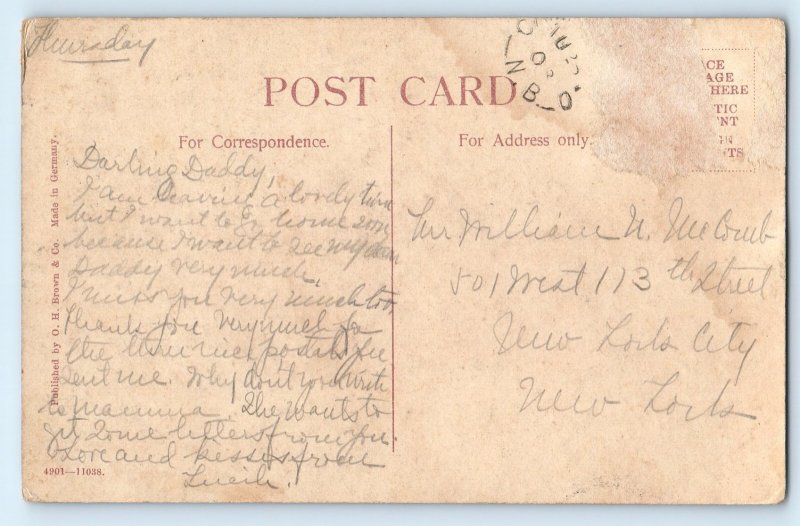 Thursday
POST CARD
For Correspondence.
For Address only.
CE
AGE
HERE
TIC
NT
IN
TS
N.B.
Darling Daddy,
I am having a lovely time
but I want to go home soon
because I want to see my own
Daddy very much.
I miss you very much too,
thank you very much for
the three nice postals you
sent me. Why don't you write
to Mamma. She wants to
get some letters from you.
Love and kisses from
Lucile.
Mr William N. McComb
501 West 113th Street
New York City
New York
Published by O. H. Brown & Co. Made in Germany.
4901—11038.